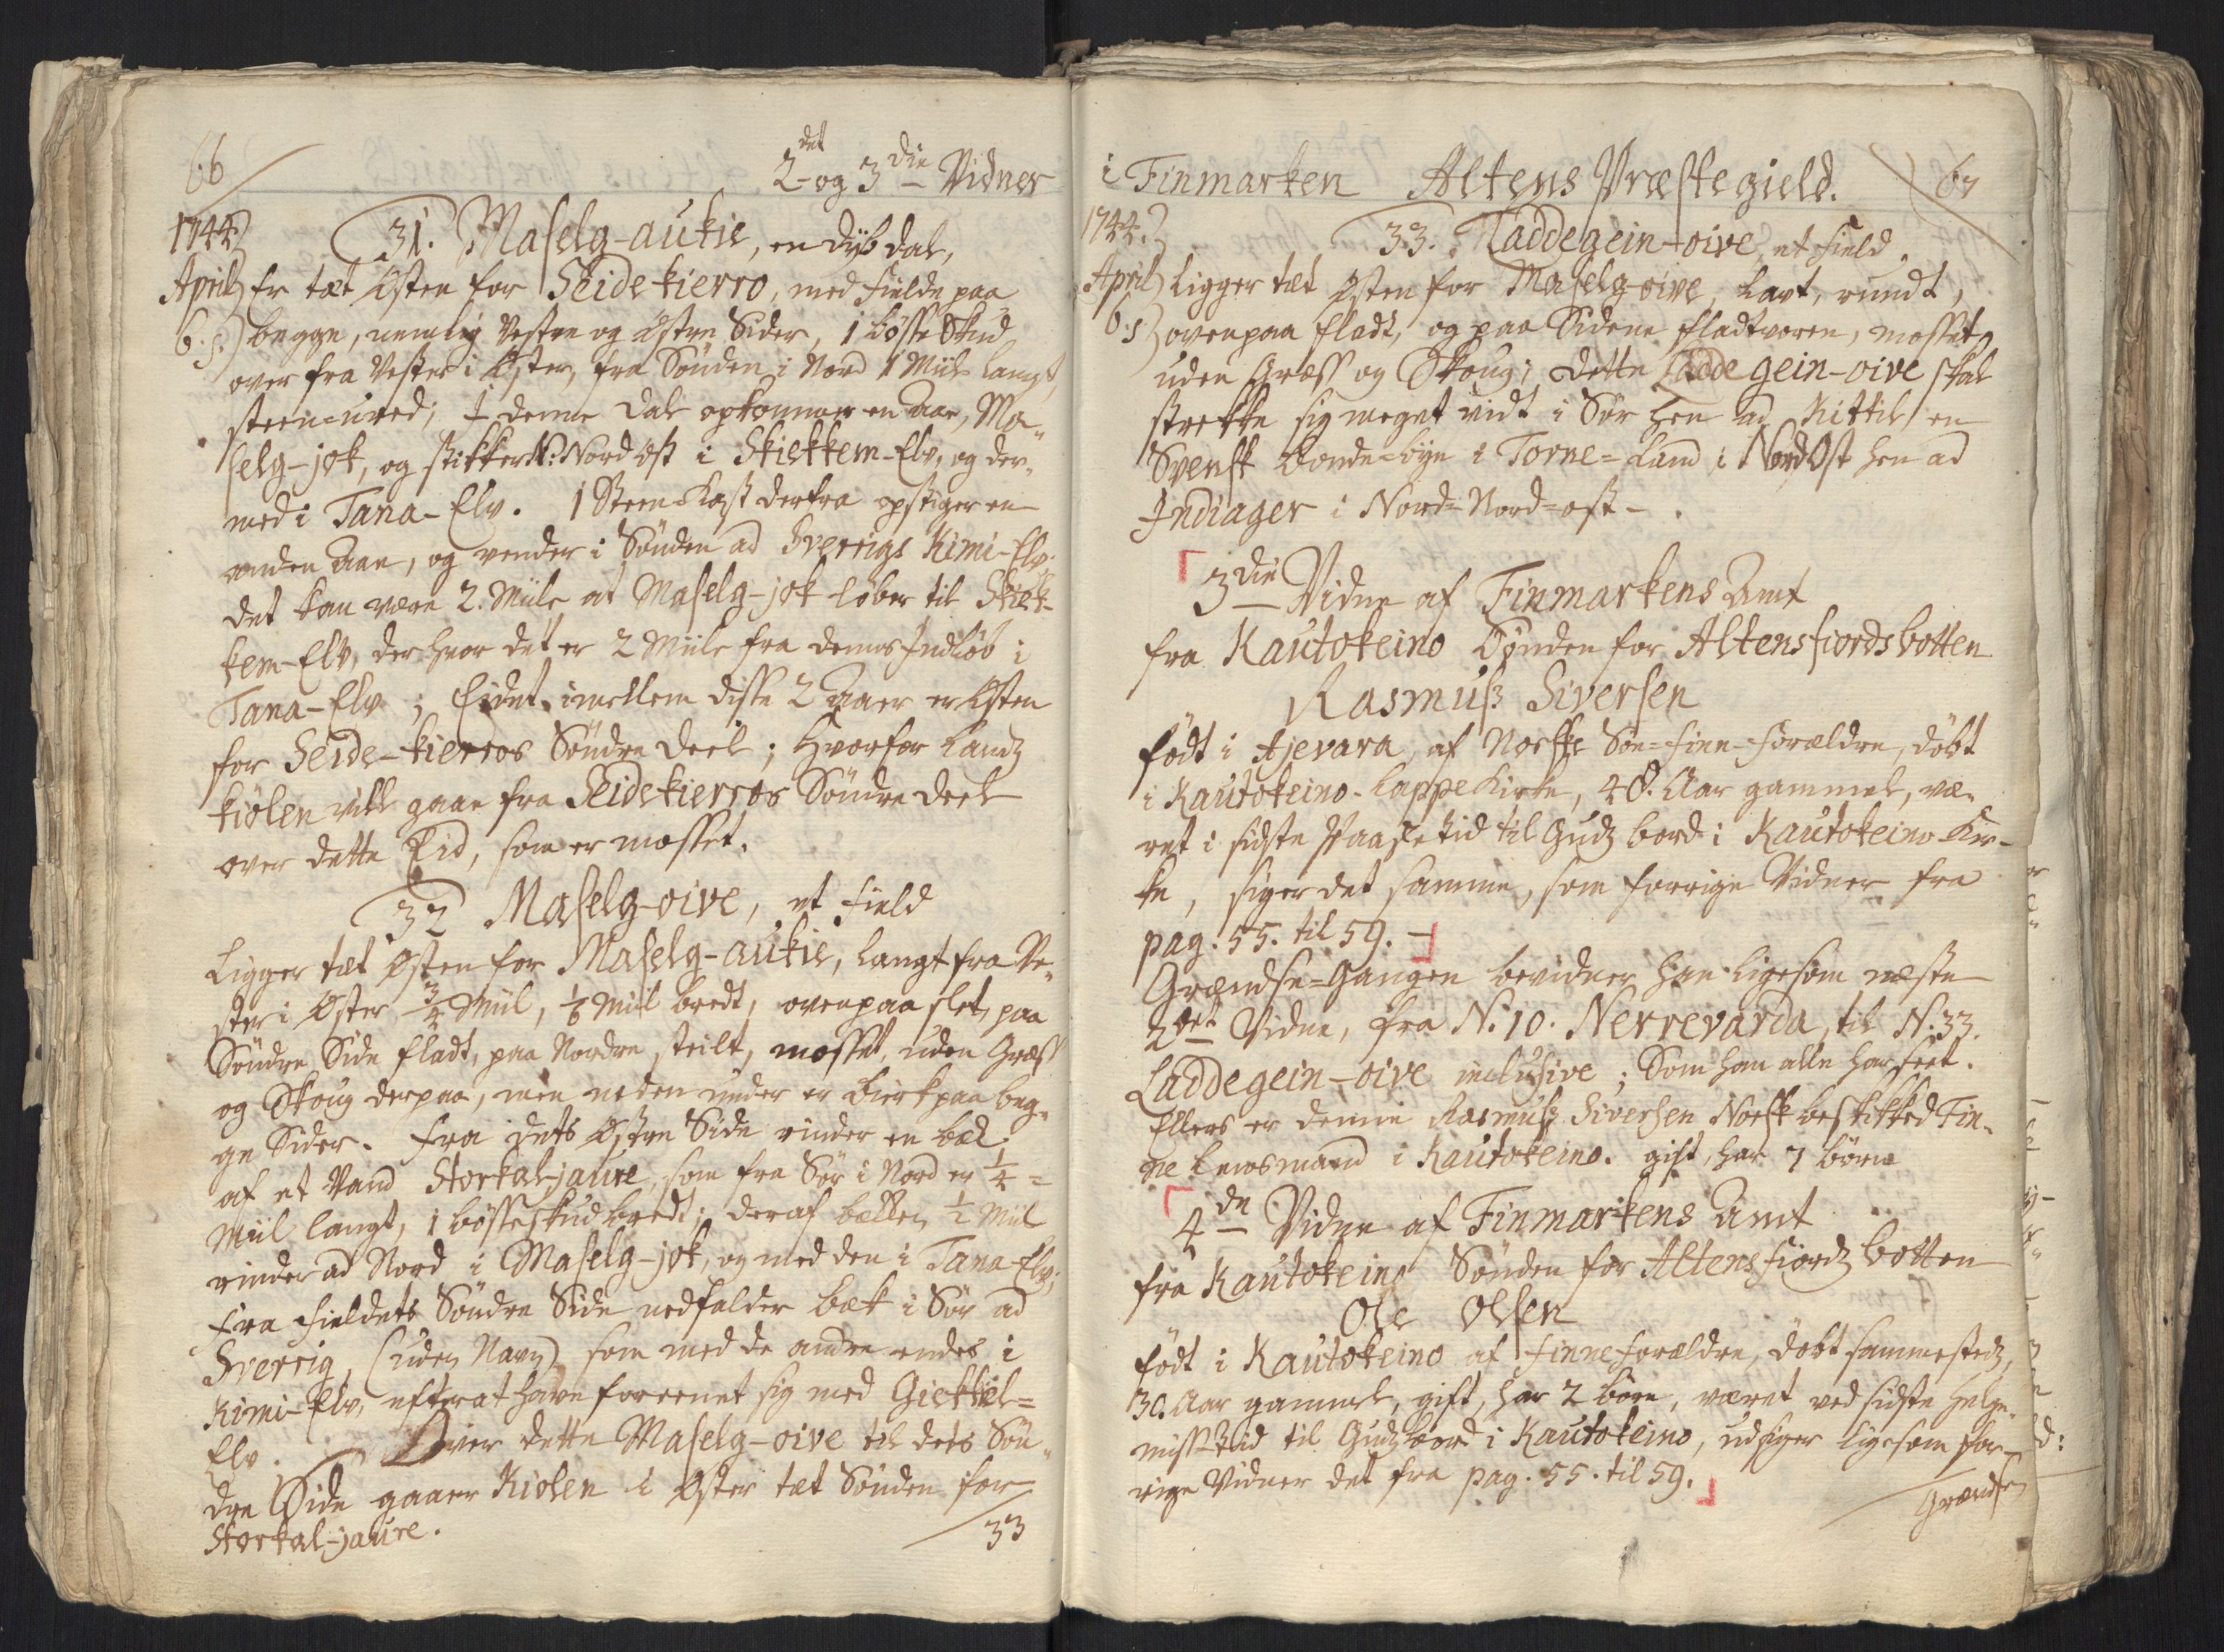 66
2det og 3die Vidner
1744.) 31. Maselg-aukie, en dyb dal,
April) Er tæt Østen for Seidekierro, med Fielde paa
6. s.) begge, nemlig Vestre og Østre Sider, 1 bösse Skud
over fra Vester i Øster, fra Sönden i Nord 1 Miil langt,
steen-ured; I denne dal opkommer en Aae, Ma-
selg-jok, og stikker N: Nordost i Skiekkem-Elv, og der-
med i Tana-Elv. 1 Steen-Kast derfra opstiger en
anden Aae, og vender i Sönden ad Sverrigs Kimi-Elv.
det kan være 2. Miile at Maselg-jok löber til Skiek-
kem-Elv, der hvor det er 2 Miile fra dennes Indlöb i
Tana-Elv; Eidet imellem disse 2 Aaer er Østen
for Seide-kierros Söndre deel; hvorfor Landz
kiölen vill gaae fra Seidekierros Söndre deel
over dette Eid, som er mosset.
32 Maselg-oive, et Field
Ligger tæt Østen for Maselg-aukie, langt fra Ve-
ster i Øster 3/4 Miil, 1/8 Miil bredt, ovenpaa slet, paa
Söndre Side fladt, paa Nordre steilt, mosset, uden Græss
og Skoug derpaa, men neden under er Birk paa beg-
ge Sider. Fra dets Østre Side rinder en bæk
af et Vand Storkal-jaure, som fra Sör i Nord er 1/4 =
Miil langt, 1 bösseskud bredt; deraf bækken 1/2 Miil
rinder ad Nord i Maselg-jok, og med den i Tana-Elv;
Fra Fieldets Söndre Side nedfalder bæk i Sör ad
Sverrig, (uden Navn) som med de andre endes i
Kimi-Elv, efter at have foreenet sig med Giekkiel=
Elv. Over dette Maselg-oive til dets Sön-
dre Side gaaer Kiölen i Øster tæt Sönden for
Storkal-jaure.
33
i Finmarken Altens Præstegield. 67
1744.) 33. Laddegein-oive, et Field,
April) Ligger tæt Østen for Maselg-oive, Lavt, rundt,
6. s) ovenpaa fladt, og paa Sidene fladtvoren, mosset,
uden Græss og Skoug; dette Laddegein-oive skal
strekke sig meget vidt i Sör hen ad Kittil en
Svensk Bonde-bye i Torne-Land, i NordOst hen ad
Indiager i Nord-Nord-ost.
3die Vidne af Finmarkens Amt
fra Kautokeino Sönden for Altensfiordsbotten
Rasmuss Siversen
födt i Ajevara, af Norske Söe-Finn-Forældre, döbt
i Kautokeino-Lappe Kirke, 48. Aar gammel, væ-
ret i sidste Paaske tid til Gudz bord i Kautokeino Kir-
ke, siger det samme, som forrige Vidner fra
pag. 55. til 59.
Grændse-Gangen bevidner han ligesom næste
2det Vidne, fra N. 10. Nerrevarda, til N. 33.
Laddegein-oive inclusive; Som han alle har seet.
Ellers er denne Rasmuss Siversen Norsk beskikked Fin-
ne Lensmand i Kautokeino. gift, har 7 börn
4de Vidne af Finmarkens Amt
fra Kautokeino Sönden for Altensfiordz botten
Ole Olsen
födt i Kautokeino af Finneforældre, döbt sammestedz,
30. Aar gammel, gift, har 2 börn, været ved sidste Helge-
misse-Tid til Gudz bord i Kautokeino, udsiger ligesom for-
rige Vidner det fra pag. 55. til 59.
Grændse